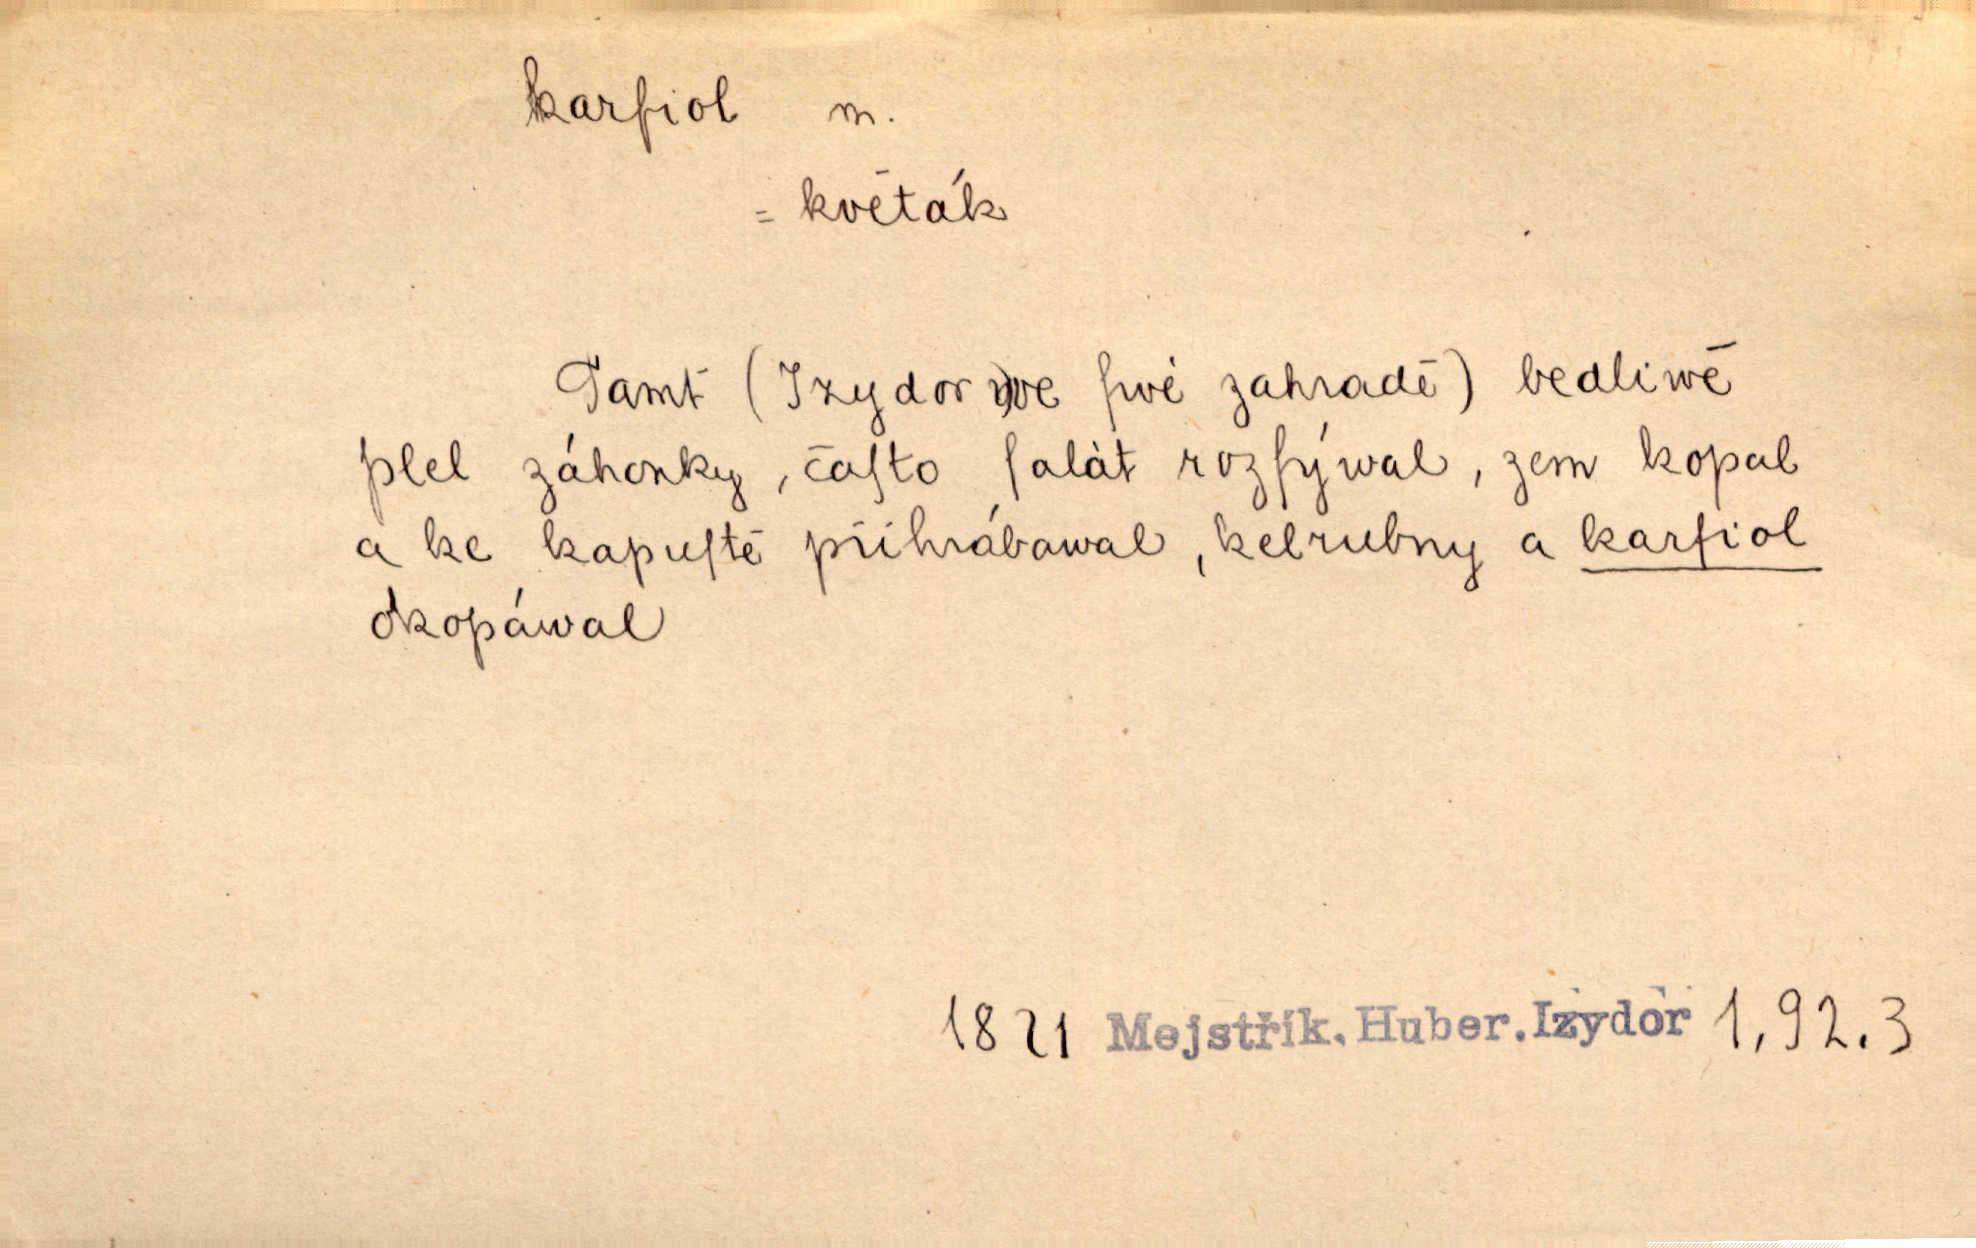 karfiol m.
= květák
Tamť (Izydor we ſwé zahradě) bedliwě
plel záhonky, čaſto ſalát rozſýwal, zem kopal
a ke kapuſtě přihrábawal, kelrubny a karfiol
okopáwal
1821 Mejstřík.Huber.Izydor 1,92.3